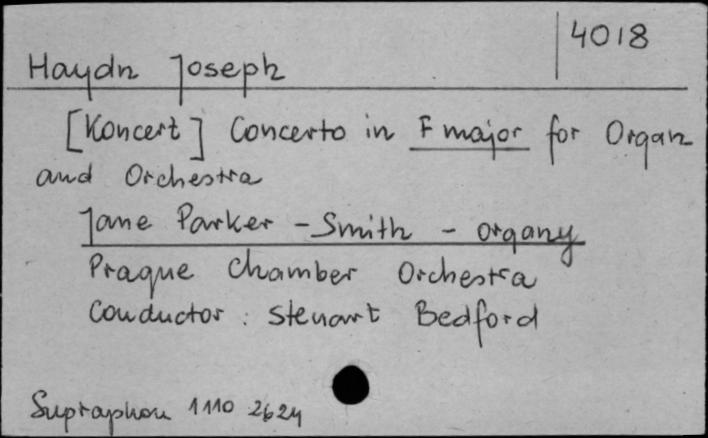 4018
Haydn Joseph
[Koncert] Concerto in F major for Organ
and Orchestra
Jane Parker - Smith - organy
Prague Chamber Orchestra
Conductor : Steuart Bedford
Supraphon 1110 2624